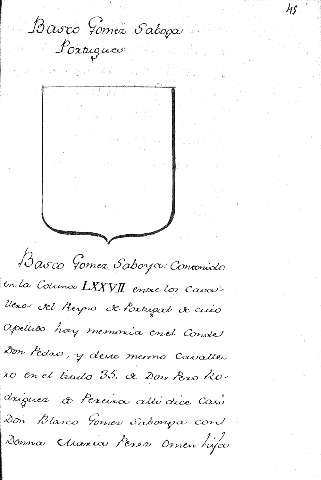 48
Basco Gomez Saboya
Portugues
Basco Gomez Saboya: Contenido
en la Coluna LXXVII entre los Cava-
lleros del Reyno de Portugal de cuio
apellido hay memoria en el Conde
Don Pedro, y deste mesmo Cavalle-
ro en el titulo 35. de Don Pero Ro-
driguez de Pereira alli dice Casó
Don Blasco Gomez Saboya con
Donna Maria Perez Omen hija